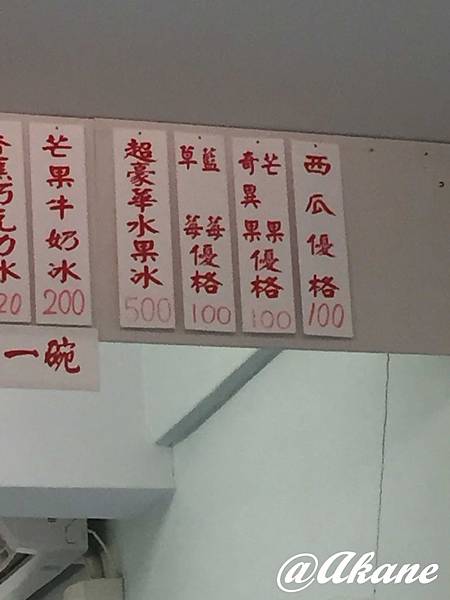 香蕉巧克力冰
20
芒果牛奶冰
200
超豪華水果冰
500
草藍
莓莓
優格
100
奇芒
異
果果
優格
100
西瓜優格
100
一碗
@Akane